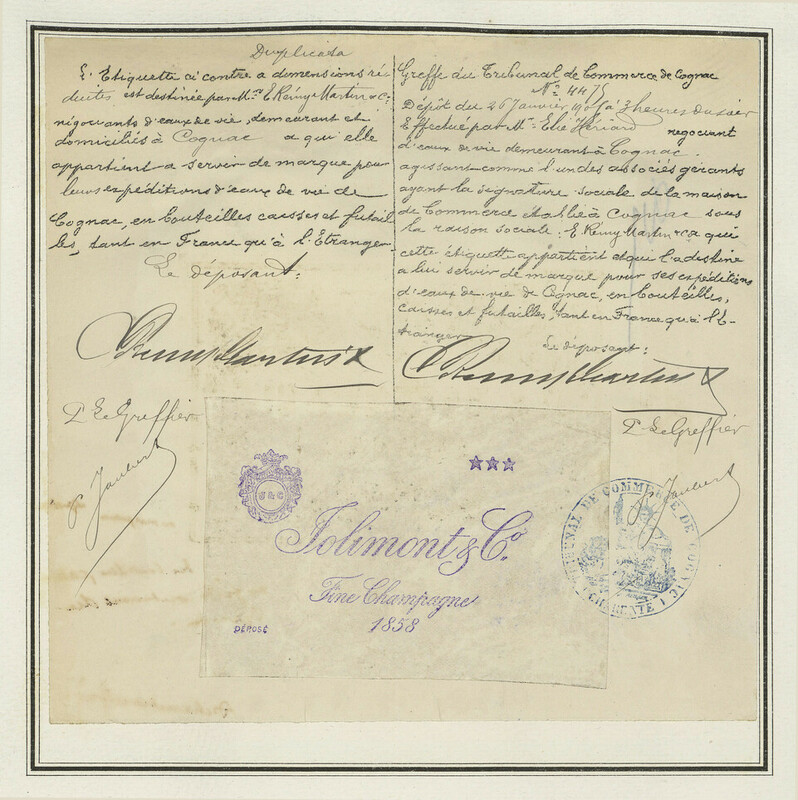 Duplicata
L'Etiquette ci contre a dimensions ré-
duites est destinée par M.rs E. Rémy Martin & Co
négociants d'eaux de vie, demeurant et
domiciliés à Cognac a qui elle
appartient a servir de marque pour
leurs expéditions d'eaux de vie de
Cognac, en bouteilles caisses et futail
les, tant en France qu'à l'Etranger
Le déposant:
E Remy Martin & Co
P. Le Greffier
Greffe du Tribunal de Commerce de Cognac
No 4475
Dépôt du 26 Janvier à 3 heures du soir
Effectué par M. Elie Hériard négociant
d'eaux de vie demeurant à Cognac.
agissant comme l'un des associés gérants
ayant la signature sociale de la maison
de Commerce établie à Cognac sous
la raison sociale: E. Remy Martin & Co a qui
cette étiquette appartient et qui l'a destine
a lui servir de marque pour ses expéditions
d'eaux de vie de Cognac, en bouteilles,
caisses et futailles, tant en France qu'à l'E-
tranger
Le déposant:
E Remy Martin & Co
P. Le Greffier
J & C
★★★
Jolimont & Co
Fine Champagne
1858
DÉPOSÉ
TRIBUNAL DE COMMERCE DE COGNAC
(CHARENTE)